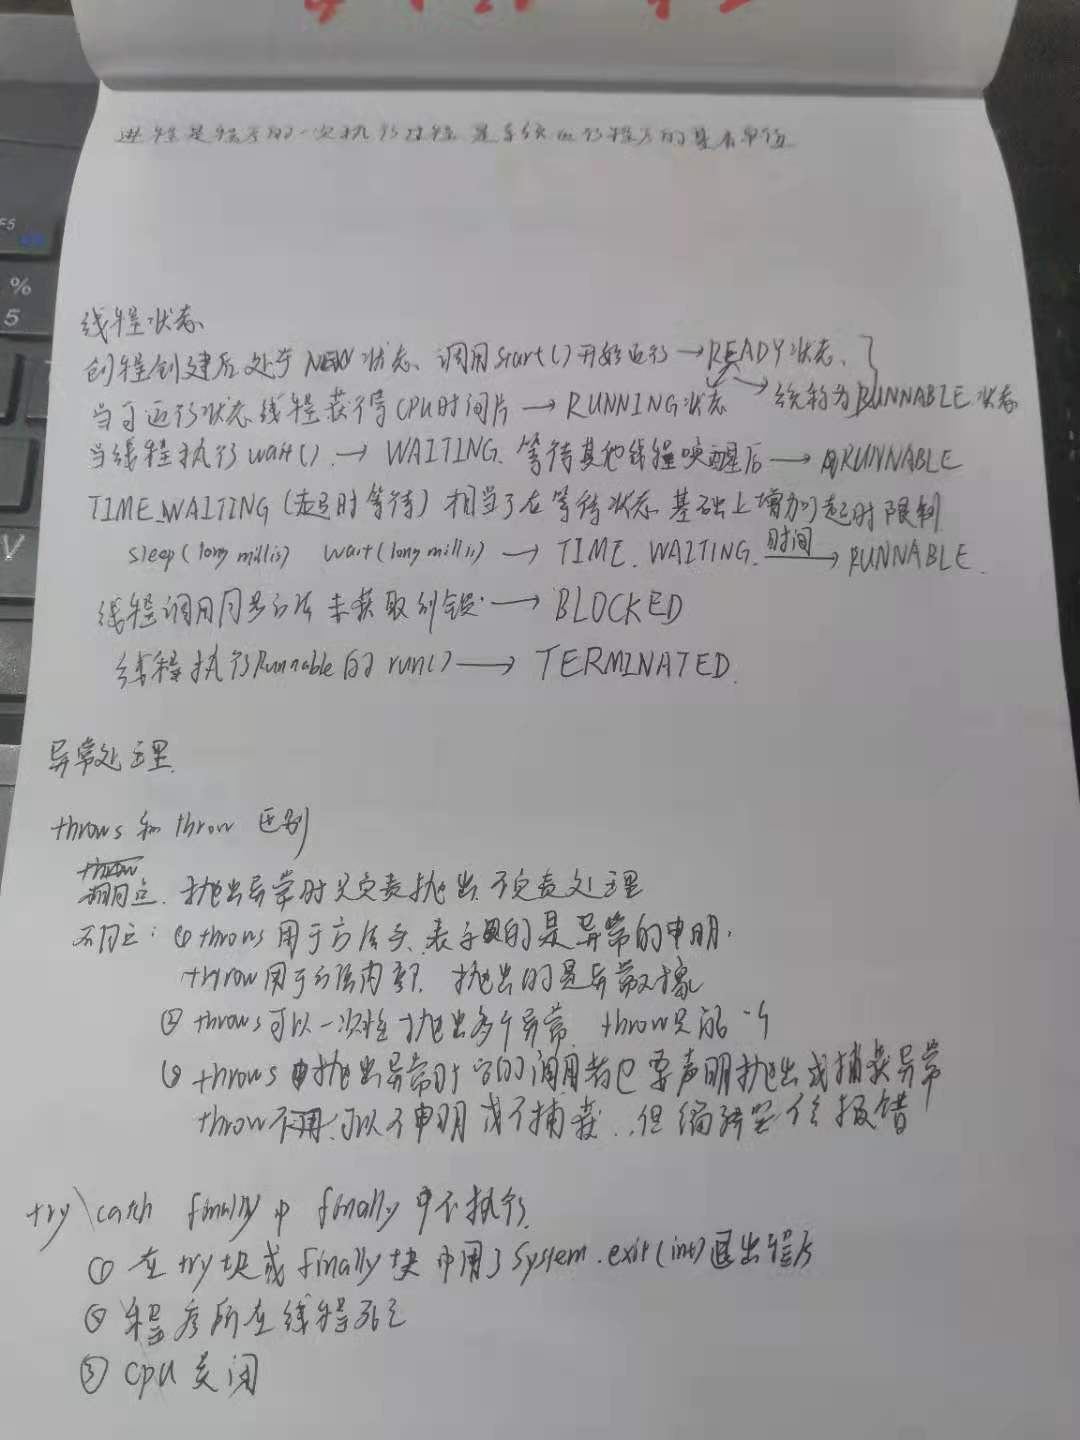 进程是程序的一次执行过程 是系统运行程序的基本单位
线程状态
创程创建后处于NEW状态、调用start()开始运行→READY状态、
当可运行状态线程获得CPU时间片→RUNNING状态 统称为RUNNABLE状态
当线程执行wait().→WAITING、等待其他线程唤醒后→RUNNABLE
TIME_WAITING(超时等待)相当于在等待状态基础上增加了超时限制
sleep(long millis) wait(long millis)→TIME_WAITING.时间→RUNNABLE.
线程调用同步方法未获取到锁.→BLOCKED
线程执行Runnable的run()→TERMINATED.
异常处理.
throws和throw区别
throw
相同点.抛出异常时只负责抛出.不负责处理
不同点:①throws用于方法头.表示的是异常的申明.
throw用于方法内部.抛出的是异常对象
②throws可以一次性抛出多个异常.throw只能一个
③throws抛出异常时它的调用者也要声明抛出或捕获异常
throw不用.可以不申明或不捕获..但编译器会报错
try\catch finally中finally中不执行.
①在try块或finally块中用了System.exit(int)退出程序
②程序所在线程死亡
③CPU关闭